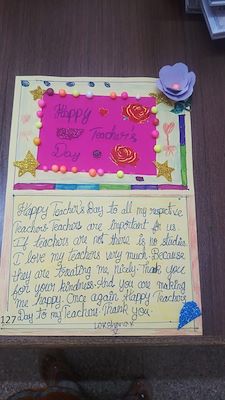 Happy
Teacher's
Day
Happy Teacher's Day to all my respective
Teachers Teachers are important for us.
If teachers are not there is no studies
I love my teachers very much. Because
they are treating me, nicely. Thank you
for your kindness. And you are making
me happy. Once again, Happy Teachers
Day to my Teachers. Thank you.
127